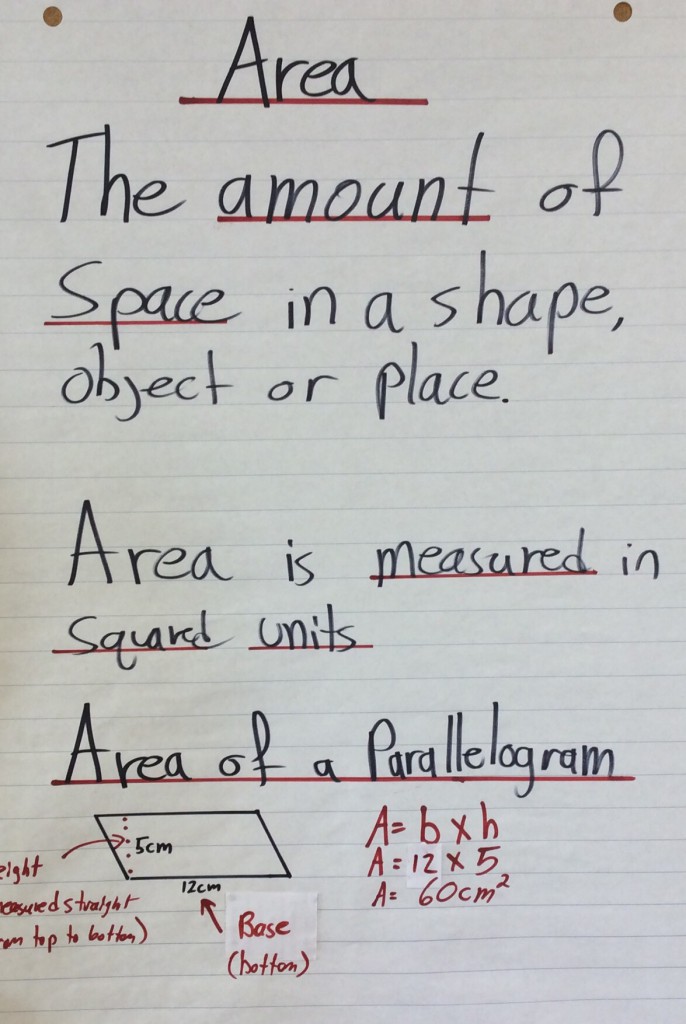 Area
The amount of
Space in a shape,
object or place.
Area is measured in
squared units
Area of a Parallelogram
5cm
12cm
eight
easured straight
om top to bottom)
Base
(bottom)
A= b x h
A= 12 x 5
A= 60cm²